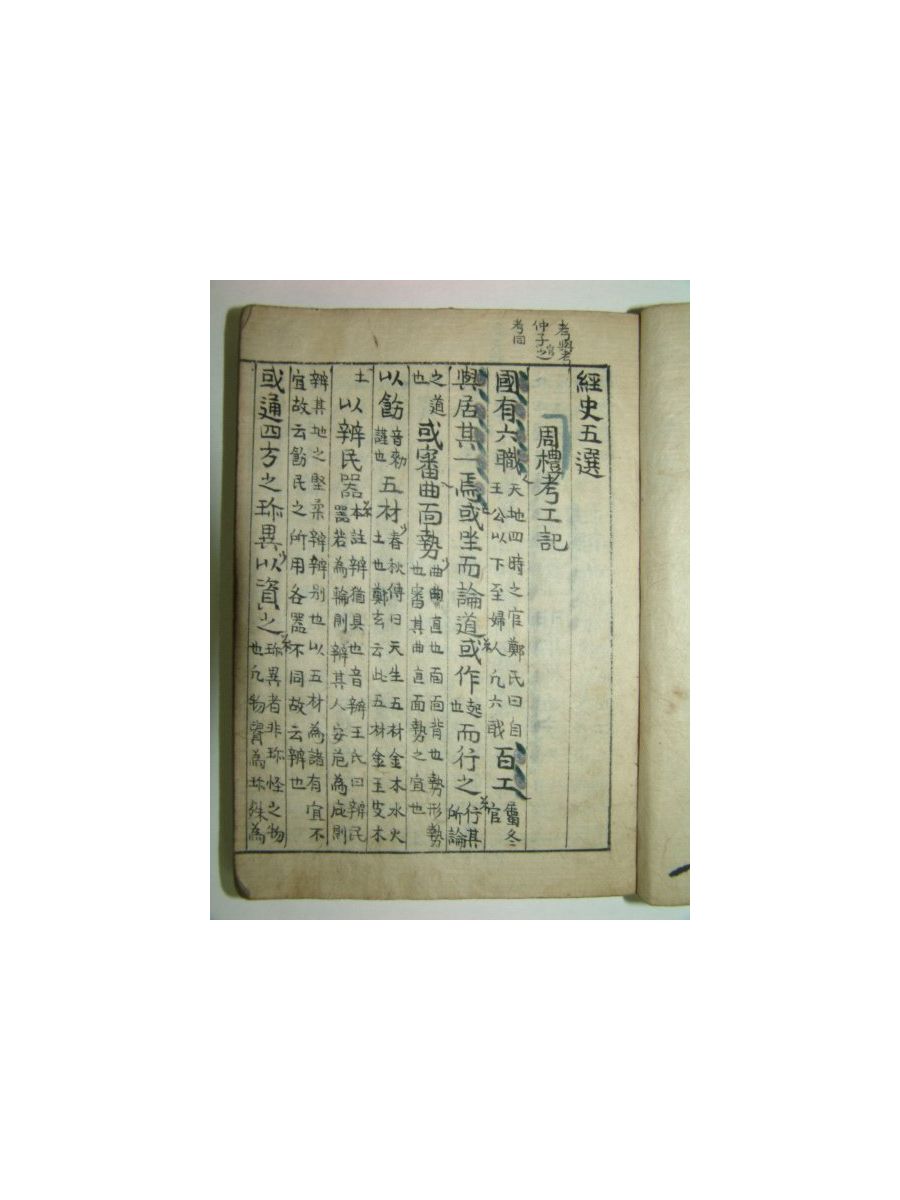 考與考
仲子之宮
考同
經史五選
周禮考工記
國有六職天地四時之官鄭氏曰自王公以下至婦人凢六職百工屬冬官
與居其一焉或坐而論道或作起也而行之行其所論
之道也或審曲面勢曲曲直也面面背也勢形勢也審其曲直面勢之宜也
以飭音勑謹也五材春秋傳曰天生五材金木水火土也鄭玄云此五材金玉皮木
土以辨民器本註辨猶具也音辨王氏曰辨民器若為輪則辨其人安危為庇則
辨其地之堅柔辨辨别也以五材為諸有宜不宜故云飭民之所用各器不同故云辨也
或通四方之珎異以資之珎異者非珎怪之物也凢物貴為珎殊為